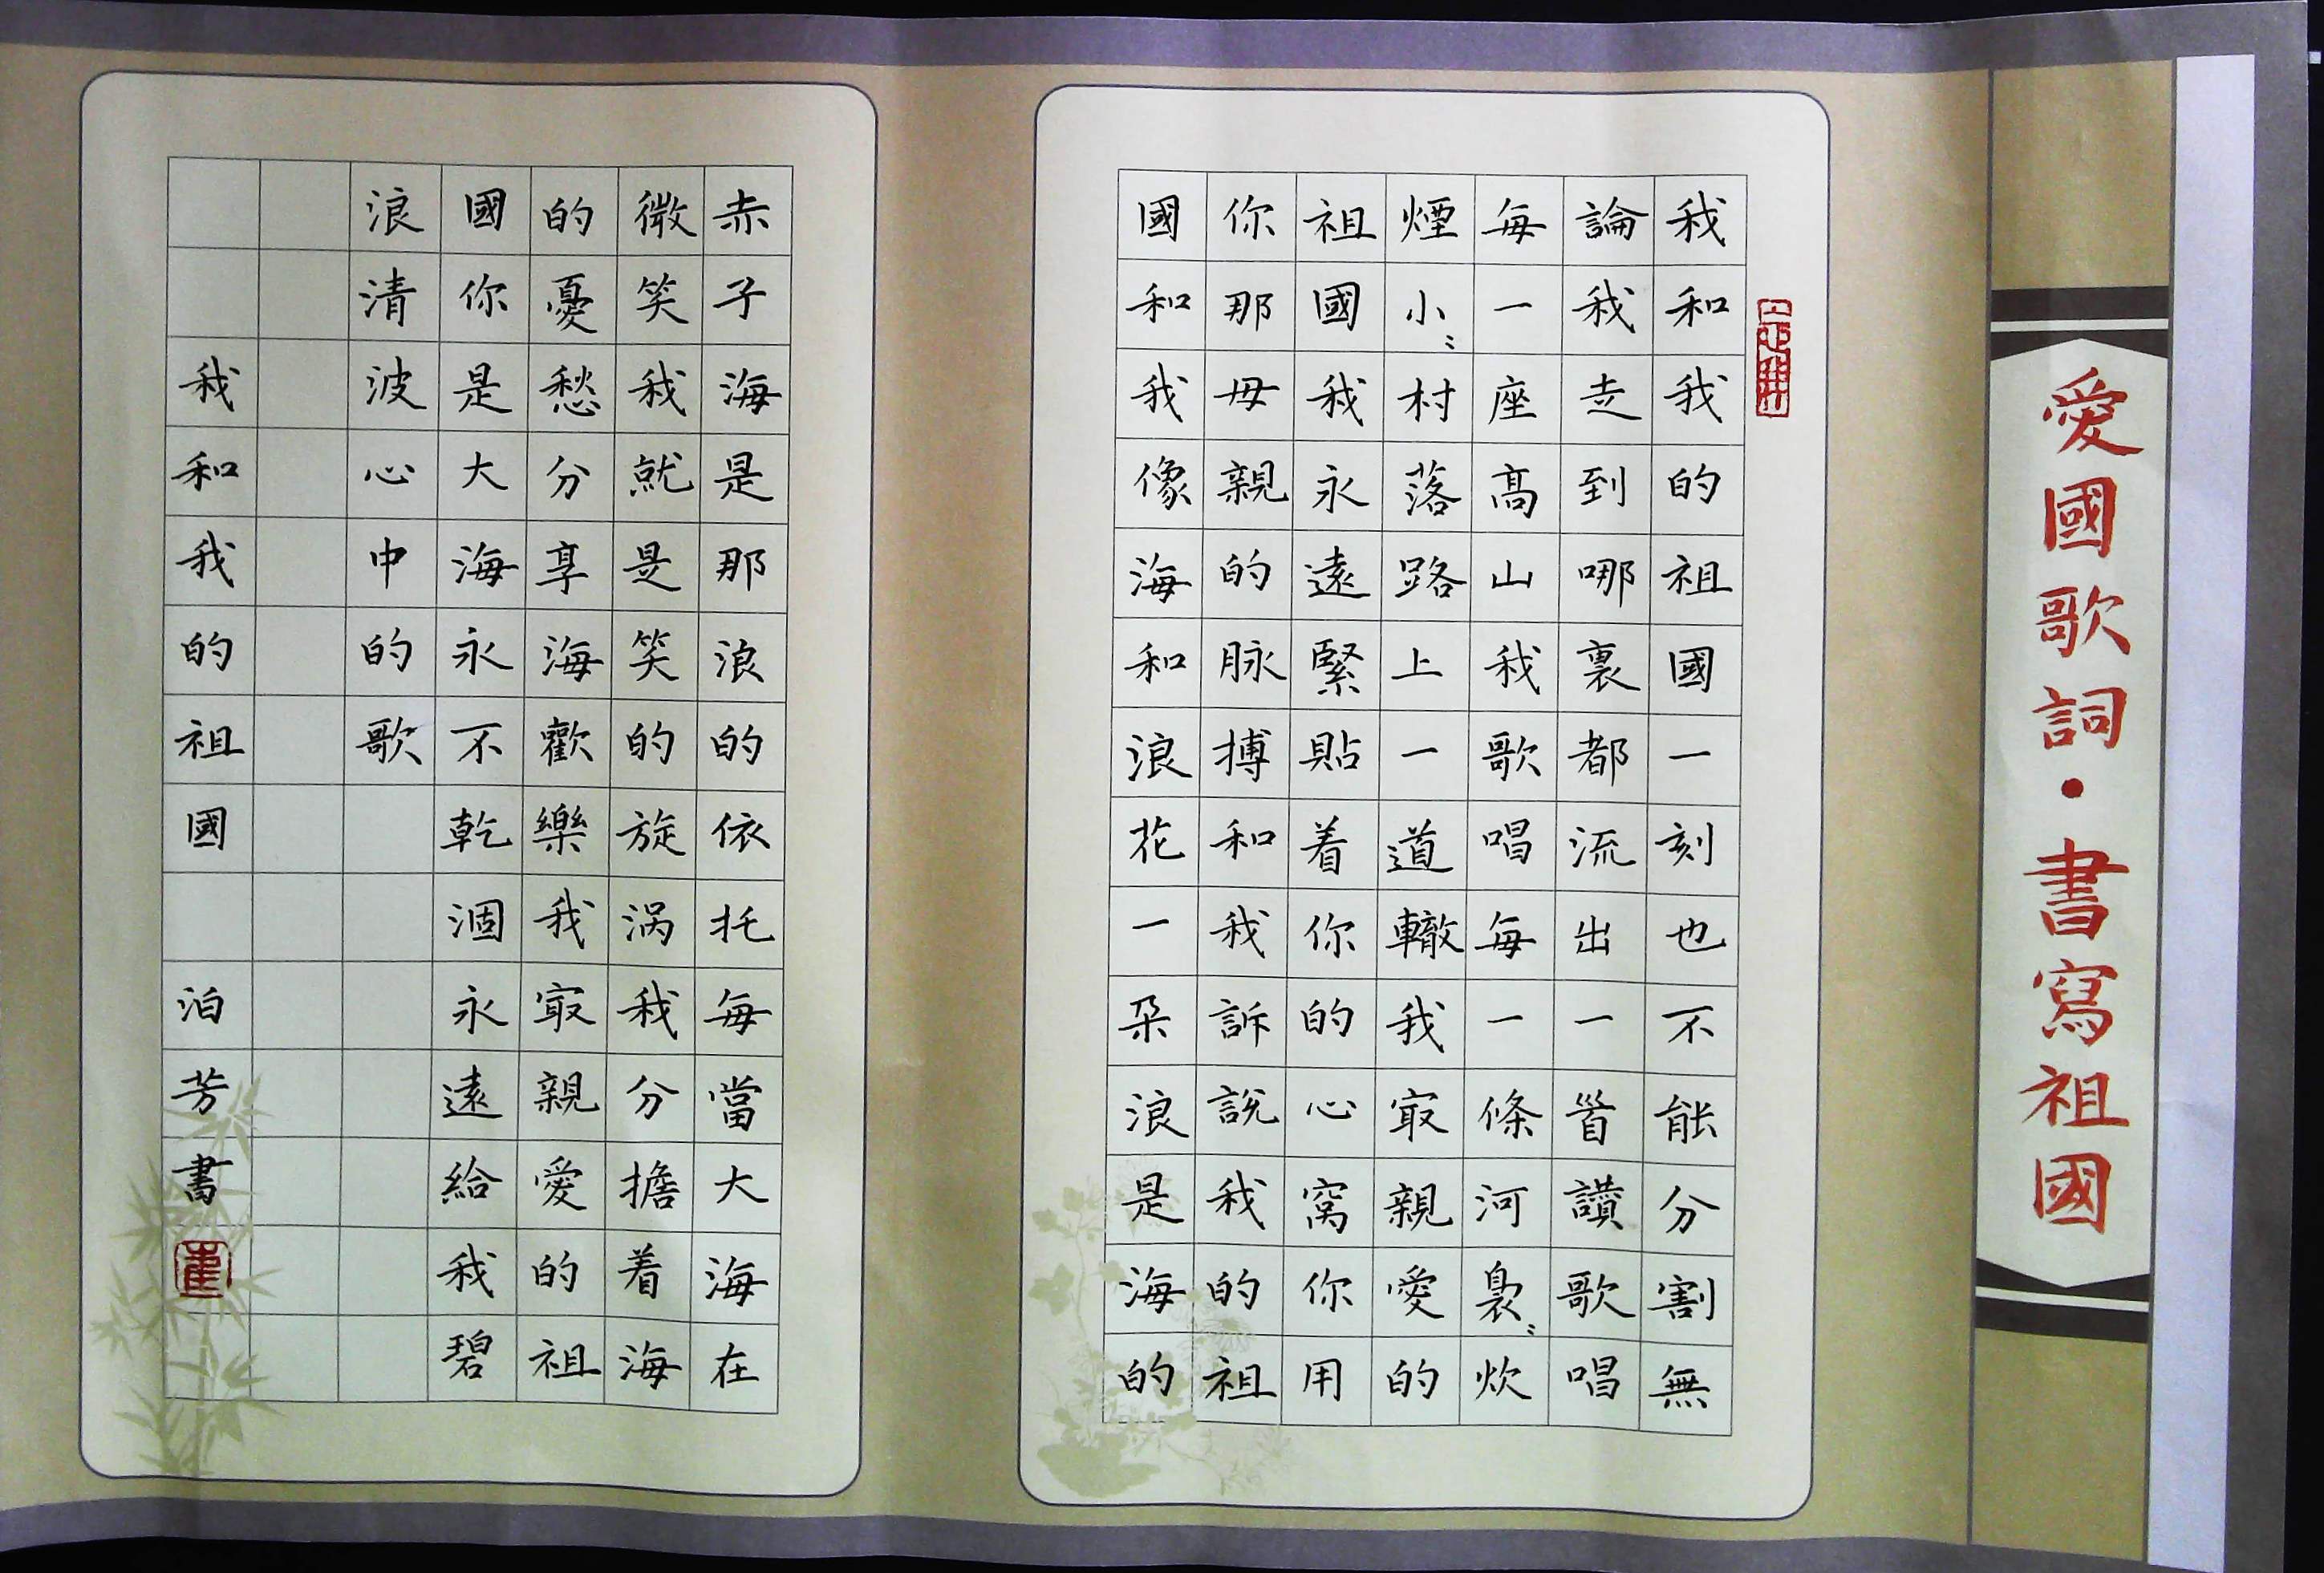 愛國歌詞·書寫祖國
我和我的祖國一刻也不能分割無
論我走到哪裏都流出一首讚歌唱
每一座高山我歌唱每一條河裊〻炊
煙小〻村落路上一道轍我最親愛的
祖國我永遠緊貼着你的心窩你用
你那母親的脉搏和我訴說我的祖
國和我像海和浪花一朵浪是海的
赤子海是那浪的依托每當大海在
微笑我就是笑的旋涡我分擔着海
的憂愁分享海歡樂我最親愛的祖
國你是大海永不乾涸永遠給我碧
浪清波心中的歌
我和我的祖國 泊芳書